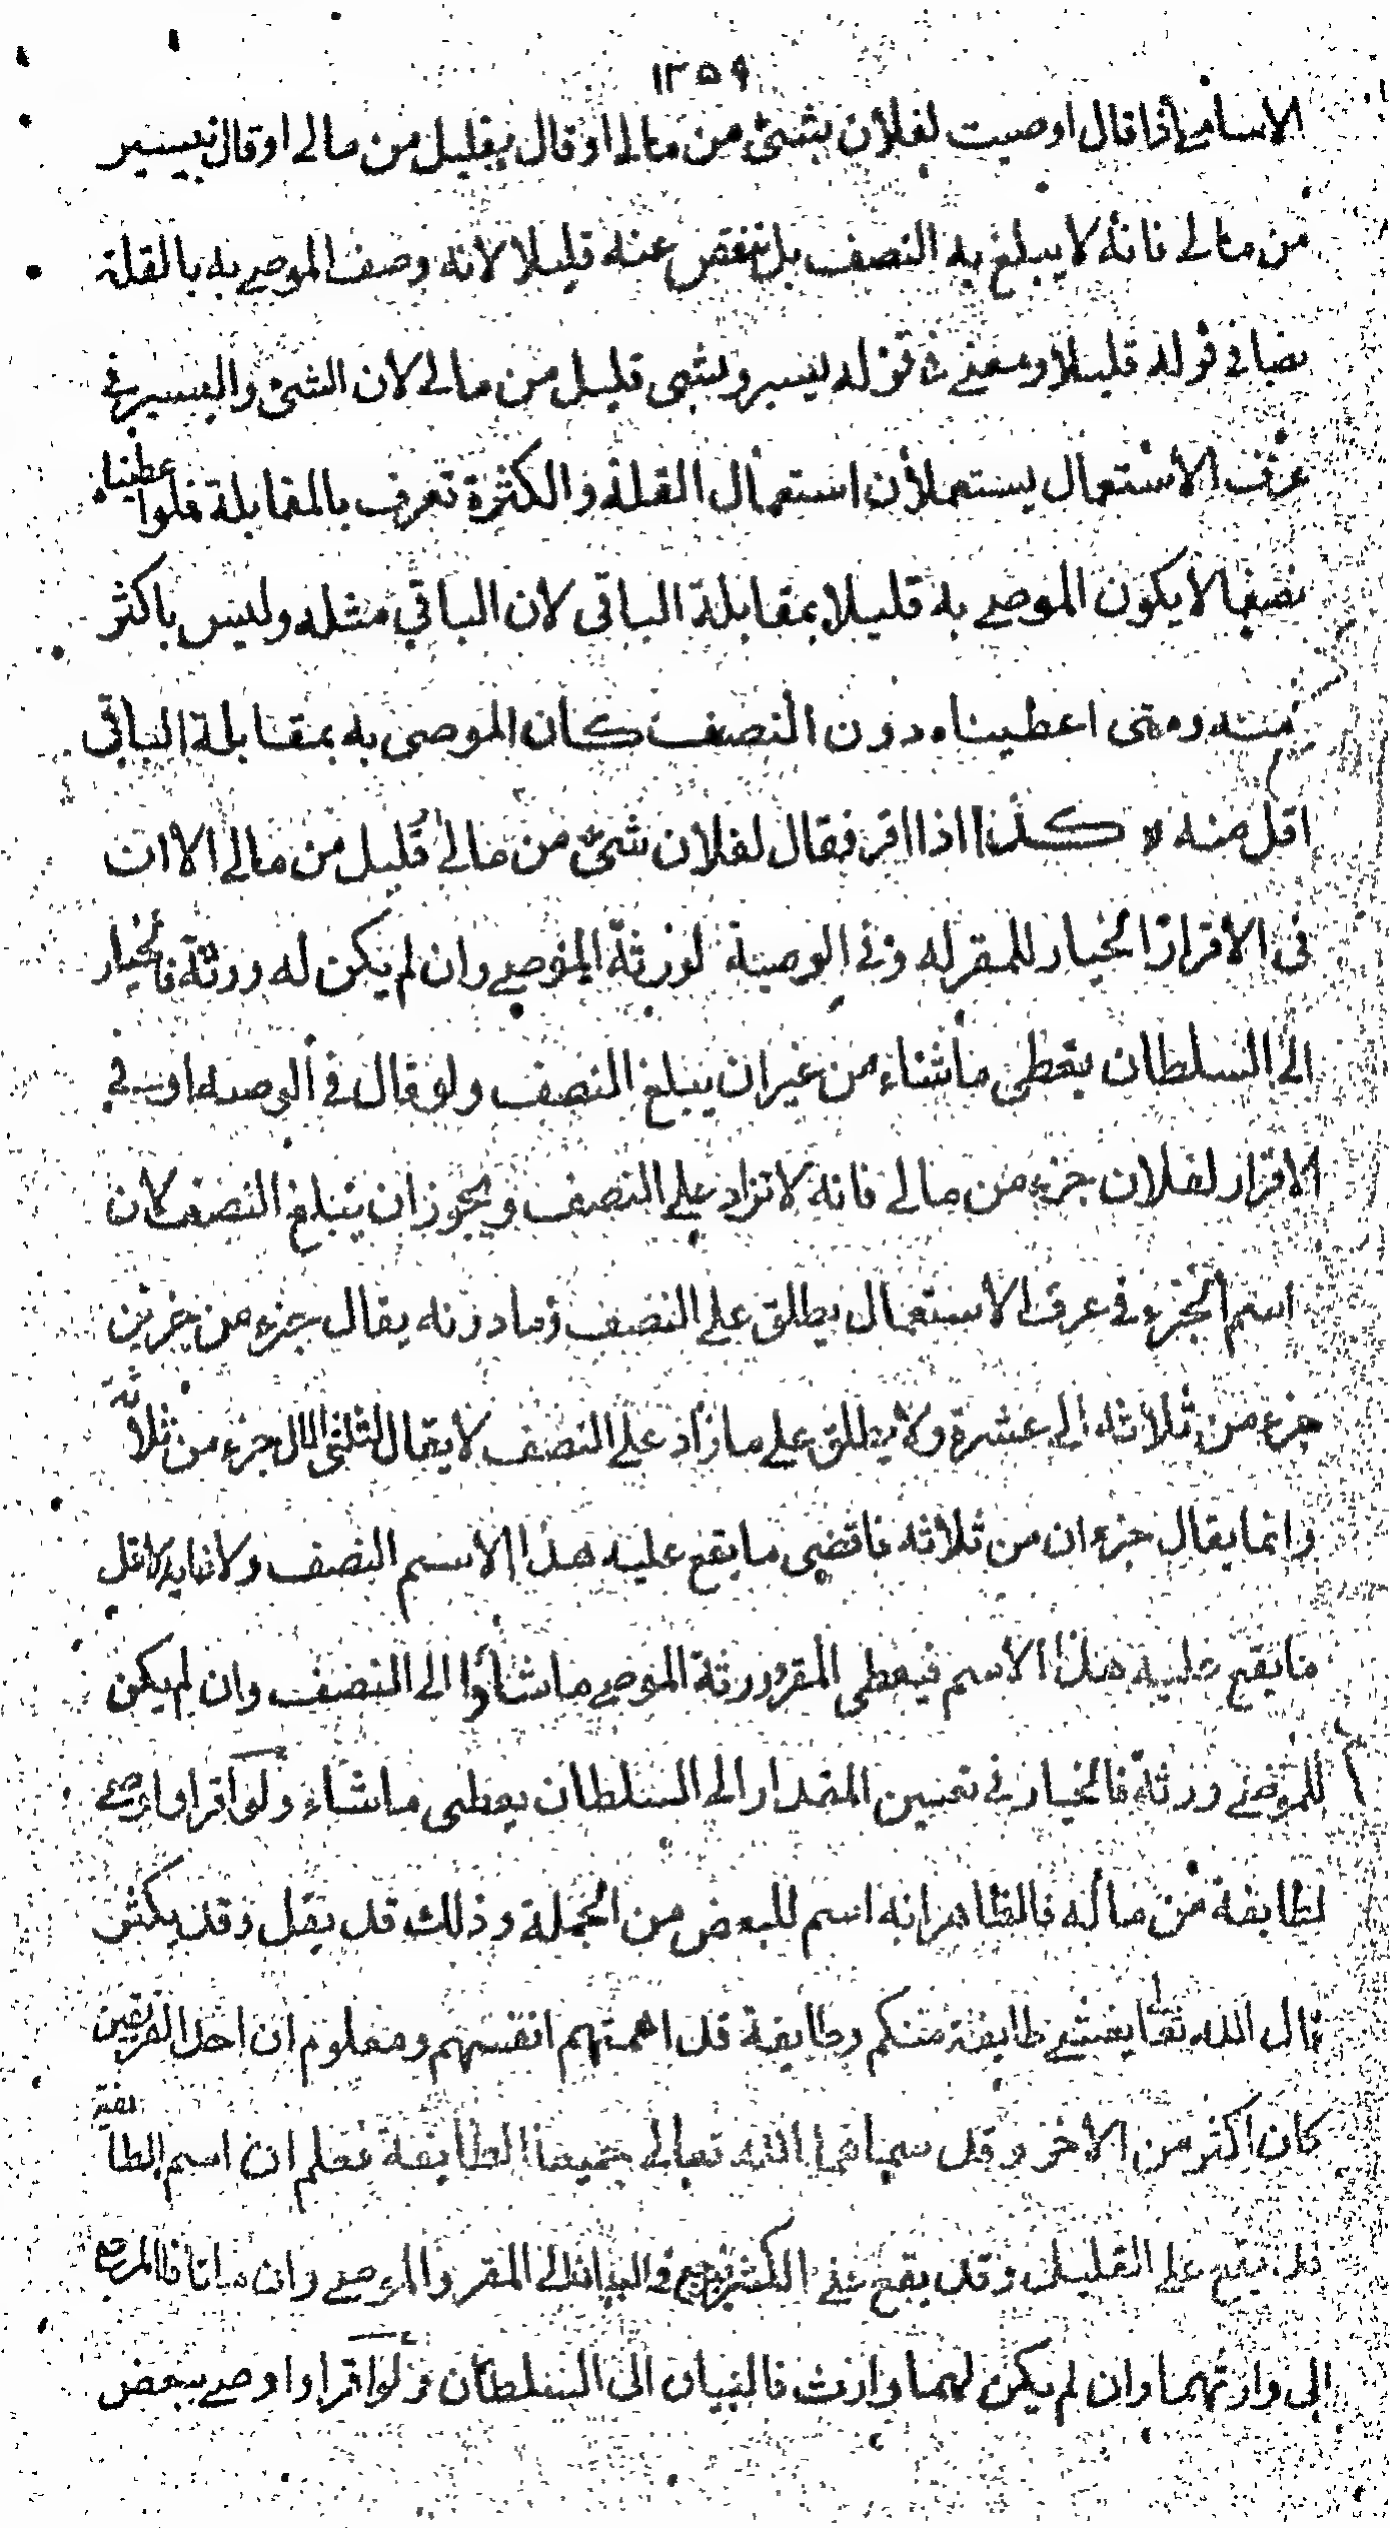 ١٢٥٩
الاسامي اذا قال اوصيت لفلان بشئ من مالي او قال بقليل من مالي او قال بيسير
من مالي فانه لا يبلغ به النصف بل ينقص عنه قليلا لانه وصف الموصي به بالقلة
نصا في قوله قليلا ومعنى في قوله يسير وبشئ قليل من مالي لان الشئ واليسير في
عرف الاستعمال يستعملان استعمال القلة والكثرة تعرف بالمقابلة فلو اعطيناه
نصفا لا يكون الموصي به قليلا بمقابلة الباقي لان الباقي مثله وليس باكثر
منه ومتى اعطيناه دون النصف كان الموصى به بمقابلة الباقي
اقل منه كذا اذا اقر فقال لفلان شئ من مالي قليل من مالي الا ان
في الاقرار الخيار للمقر له وفي الوصية لورثة الموصي وان لم يكن له ورثة فالخيار
الى السلطان يعطي ما شاء من غير ان يبلغ النصف ولو قال في الوصيه او في
الاقرار لفلان جزء من مالي فانه لا تزاد علي النصف ويجوز ان يبلغ النصف لان
اسم الجزء في عرف الاستعمال يطلق علي النصف وما دونه يقال جزء من جزئين
جزء من ثلاثه الي عشرة ولا يطلق علي ما زاد علي النصف لا يقال لثلثي المال جزء من ثلاثة
وانما يقال جزءان من ثلاثه فاقصى ما يقع عليه هذا الاسم النصف ولا غايه لاقل
ما يقع عليه هذا الاسم فيعطي المقر وورثة الموصي ما شاؤا الي النصف وان لم يكن
للموصي ورثة فالخيار في تعيين المقدار الى السلطان يعطي ما شاء ولو اقر او اوصي
لطايفة من ماله فالظاهر انه اسم للبعض من الجملة وذلك قد يقل وقد يكثر
قال الله تعالى يغشي طايفة منكم وطايفة قد اهمتهم انفسهم ومعلوم ان احد الفريقين
كان اكثر من الاخر وقد سماهما الله تعالي جميعا الطايفة فعلم ان اسم الطايفة
قد يقع علي القليل وقد يقع علي الكثير فيرجع في البيان الي المقر والموصي وان ماتا فالمرجع
الى وارثهما وان لم يكن لهما وارث فالبيان الى السلطان ولو اقر او اوصي ببعض